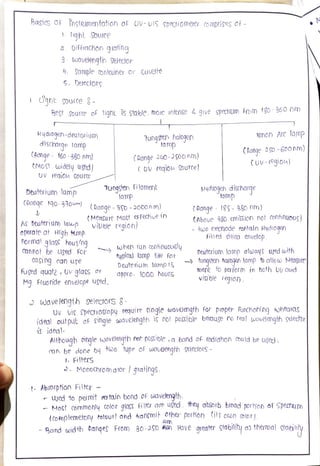 Basics of Instrumentation of UV-VIS spectrometer comprises of -
1. Light source
2. Diffraction grating
3. Wavelength selector
4. Sample container or Cuvette
5. Detectors
1. Light source :-
Best source of light is stable, more intense & give spectrum from 180-360 nm
Hydrogen-deuterium discharge lamp
(Range - 160-380 nm)
(Most widely used)
UV region source
Tungsten halogen lamp
(Range 240-2500nm)
(UV region source)
Xenon Arc lamp
(Range 250-600nm)
(UV-region)
Deuterium lamp
(Range 190-370nm)
AC Deuterium lamp operate at High temp
Normal glass housing cannot be used for casing can use
Fused quartz, UV glass or Mg Fluoride envelope used.
Tungsten Filament lamp
(Range - 350-2000nm)
(Measure Most effective in visible region)
When run continuously typical lamp life for Deuterium lamp is approx. 1000 hours
Hydrogen discharge lamp
(Range - 185-380 nm)
(Above 380 emission not continuous)
- two electrode contain Hydrogen filled
Deuterium lamp always used with tungsten halogen lamp to allow Measurement to perform in both UV and visible region.
2. Wavelength selectors :-
UV VIS spectroscopy require single wavelength for proper functioning whereas ideal output of single wavelength is not possible because no real wavelength selector is ideal.
Although single wavelength not possible - a band of radiation could be used.
can be done by two type of wavelength selectors -
1. Filters
2. Monochromator / gratings.
1. Absorption Filter -
- Used to permit certain band of wavelength
- Most commonly color glass filter are used. they absorb broad portion of spectrum (complementary colour) and transmit other portion (its own color).
- Band width Ranges from 30-250 nm Have greater stability as thermal stability